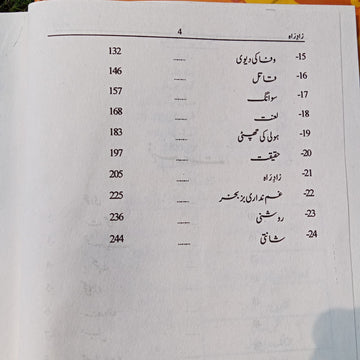 زادِ راہ 4
15- وفا کی دیوی ---- 132
16- قاتل ---- 146
17- سوانگ ---- 157
18- لعنت ---- 168
19- ہولی کی چھٹی ---- 183
20- حقیقت ---- 197
21- زادِ راہ ---- 205
22- غم نداری بز بخر ---- 225
23- روشنی ---- 236
24- شانتی ---- 244